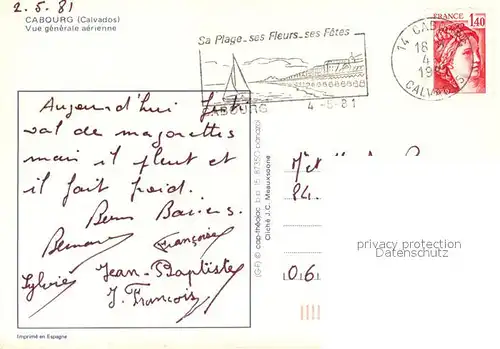 2.5.81
CABOURG (Calvados)
Vue générale aérienne
Sa Plage_ses Fleurs_ses Fêtes
CABOURG 4-5-81
14 CABOURG
18
4
19
CALVADOS
FRANCE
1,40
Aujourd'hui festi
val de majorettes
mais il pleut et
il fait froid.
Bons Baisers.
Bernard Françoise
Sylvie Jean-Baptiste
J. François
(G-F) © cap-théojac b.p. 15 87350 panazol
Cliché J.C. Meauxsoone
M et
84.
06
privacy protection
Datenschutz
Imprimé en Espagne